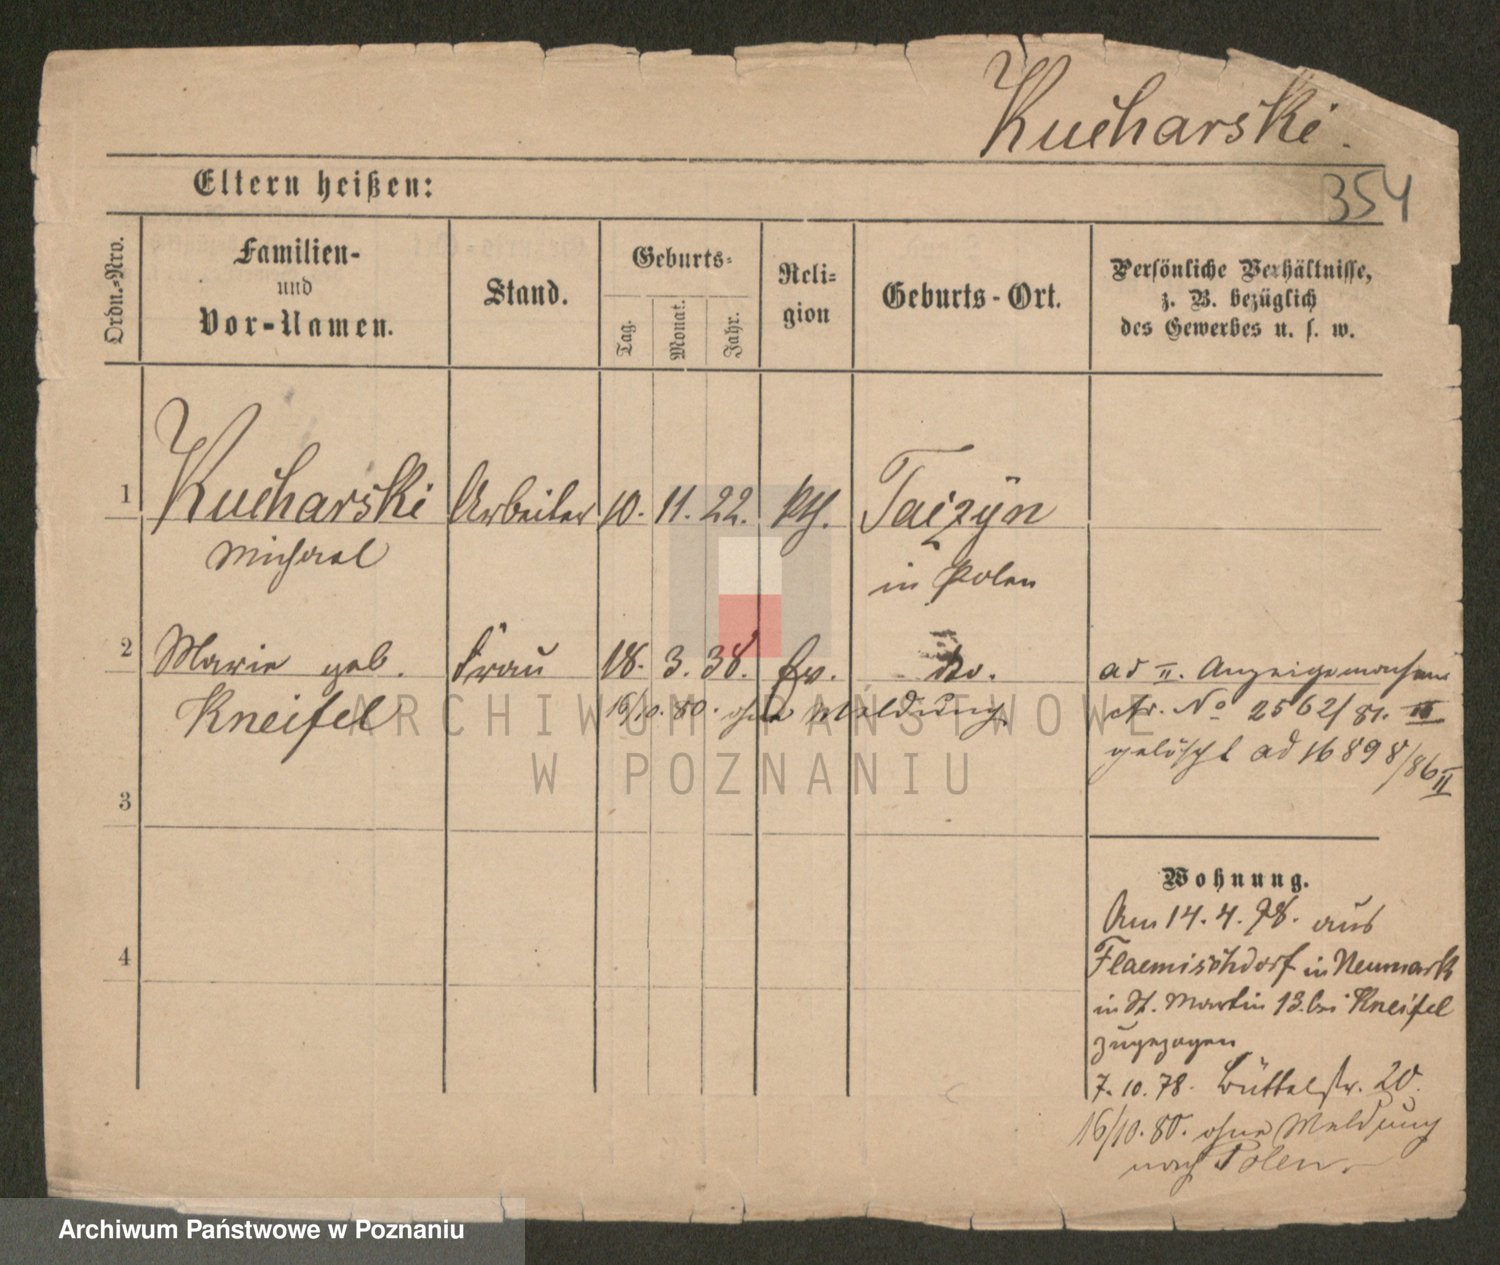 Kucharski.
354
Eltern heißen:
Ordn.-Nro.
Familien-
und
Vor-Namen.
Stand.
Geburts-
Tag.
Monat.
Jahr.
Reli-
gion
Geburts-Ort.
Persönliche Verhältnisse,
z. B. bezüglich
des Gewerbes u. s. w.
1 Kucharski Arbeiter 10. 11. 22. kth. Taizÿn
Michael
in Polen
2 Marie geb. Frau 18. 3. 38. Ev. do.
Kneifel
16/10. 80. ohne Meldung
ad II. Anzeigemachen
No 2562/81. II
gelöscht ad 16898/86 II
3
4
Wohnung.
Am 14. 4. 78. aus
Flaemischdorf in Neumark
in St. Martin 13. bei Kneifel
zugezogen
7. 10. 78. Büttelstr. 20.
16/10. 80. ohne Meldung
nach Polen.
ARCHIWUM PAŃSTWOWE
W POZNANIU
Archiwum Państwowe w Poznaniu